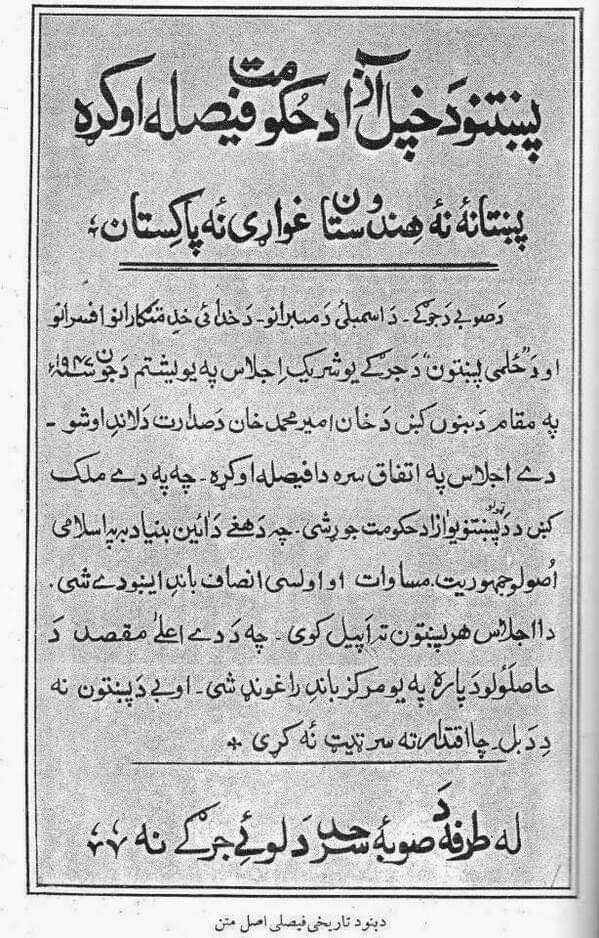 پښتنو د خپل ازاد حکومت فیصله اوکړه
پښتانهٔ نهٔ هِندوستان غواړی نهٔ پاکِستان؛
د صوبے د جرګے ـ د اسمبلئ د ممبرانو ـ د خدائی خدمتګارانو افسرانو
او د "ځلمی پښتون" د جرګے یو شریک اِجلاس په یویشتم د جون ۱۹۴۷ء
په مقام د بنوں کښِ د خان امیر محمد خان د صدارت دلاندِ اوشو ـ
دے اجلاس په اتفاق سره دا فیصله اوکړه ـ چه په دے ملک
کښِ دِ د ټولو پښتنو یو ازاد حکومت جوړ شی ـ چه د هغے د ائین بنیاد به په اسلامی
اُصولو جمهوریت، مساوات او اولسی انصاف باندِ ایښودے شی ـ
دا اجلاس هر پښتون ته اپیل کوی ـ چه د دے اعلےٰ مقصد د
حاصلولو د پاره په یو مرکز باندِ راغونډ شی ـ او بے د پښتون نه
دِ د بل ـ چا اقتدار ته سر ټیټ نهٔ کړی *
له طرفه د صوبهٔ سرحد د لوئے جرګے نه
د بنود تاریخی فیصلی اصل متن